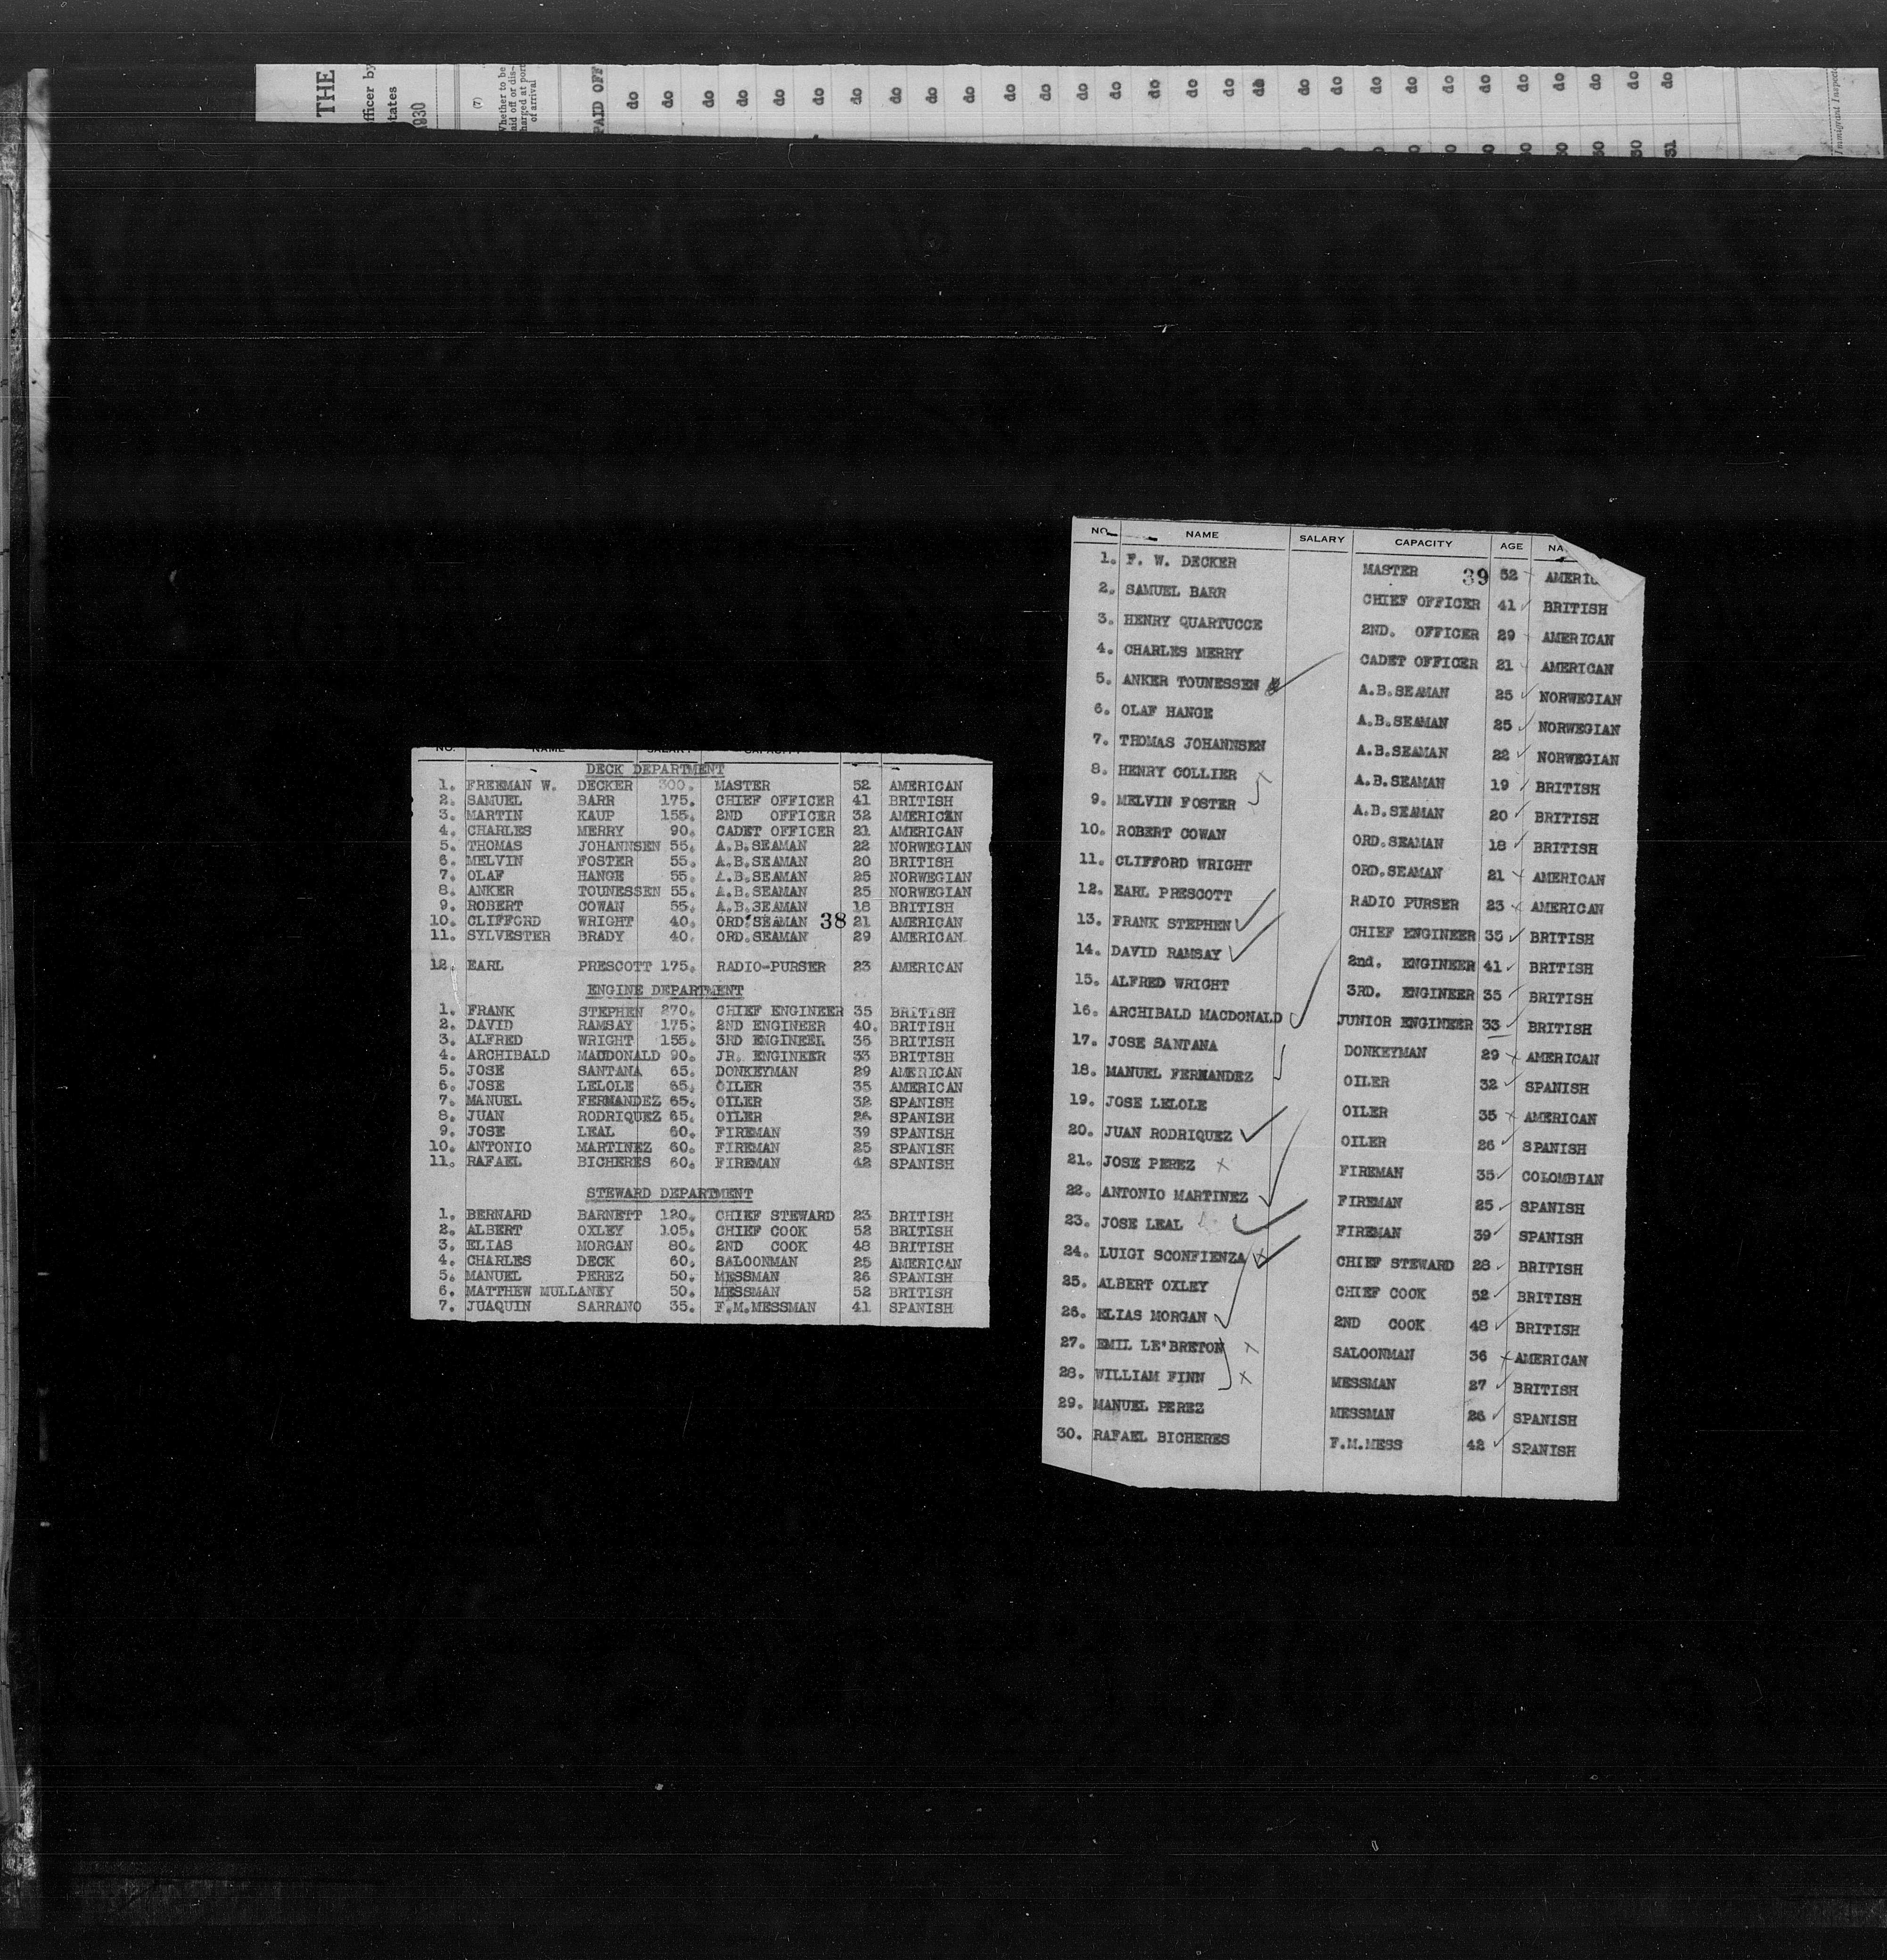 THE
officer by
states
1930
(7)
Whether to be
paid off or dis-
charged at port
of arrival
PAID OFF
do do do do do do do do do do do do do do do do do do do do do do do do do do do do
30 30 30 30 30 30 30 30 30 31
Immigrant Inspector
NO. NAME SALARY CAPACITY
DECK DEPARTMENT
1. FREEMAN W. DECKER 300. MASTER 52 AMERICAN
2. SAMUEL BARR 175. CHIEF OFFICER 41 BRITISH
3. MARTIN KAUP 155. 2ND OFFICER 32 AMERICAN
4. CHARLES MERRY 90. CADET OFFICER 21 AMERICAN
5. THOMAS JOHANNSEN 55. A.B.SEAMAN 22 NORWEGIAN
6. MELVIN FOSTER 55. A.B.SEAMAN 20 BRITISH
7. OLAF HANGE 55. A.B.SEAMAN 25 NORWEGIAN
8. ANKER TOUNESSEN 55. A.B.SEAMAN 25 NORWEGIAN
9. ROBERT COWAN 55. A.B.SEAMAN 18 BRITISH
10. CLIFFORD WRIGHT 40. ORD.SEAMAN 38 21 AMERICAN
11. SYLVESTER BRADY 40. ORD.SEAMAN 29 AMERICAN
12. EARL PRESCOTT 175. RADIO-PURSER 23 AMERICAN
ENGINE DEPARTMENT
1. FRANK STEPHEN 270. CHIEF ENGINEER 35 BRITISH
2. DAVID RAMSAY 175. 2ND ENGINEER 40. BRITISH
3. ALFRED WRIGHT 155. 3RD ENGINEER 35 BRITISH
4. ARCHIBALD MACDONALD 90. JR. ENGINEER 33 BRITISH
5. JOSE SANTANA 65. DONKEYMAN 29 AMERICAN
6. JOSE LELOLE 65. OILER 35 AMERICAN
7. MANUEL FERNANDEZ 65. OILER 32 SPANISH
8. JUAN RODRIQUEZ 65. OILER 26 SPANISH
9. JOSE LEAL 60. FIREMAN 39 SPANISH
10. ANTONIO MARTINEZ 60. FIREMAN 25 SPANISH
11. RAFAEL BICHERES 60. FIREMAN 42 SPANISH
STEWARD DEPARTMENT
1. BERNARD BARNETT 120. CHIEF STEWARD 23 BRITISH
2. ALBERT OXLEY 105. CHIEF COOK 52 BRITISH
3. ELIAS MORGAN 80. 2ND COOK 48 BRITISH
4. CHARLES DECK 60. SALOONMAN 25 AMERICAN
5. MANUEL PEREZ 50. MESSMAN 26 SPANISH
6. MATTHEW MULLANEY 50. MESSMAN 52 BRITISH
7. JUAQUIN SARRANO 35. F.M.MESSMAN 41 SPANISH
NO. NAME SALARY CAPACITY AGE
1. F. W. DECKER MASTER 39 52 AMERIC
2. SAMUEL BARR CHIEF OFFICER 41 BRITISH
3. HENRY QUARTUCCE 2ND. OFFICER 29 AMERICAN
4. CHARLES MERRY CADET OFFICER 21 AMERICAN
5. ANKER TOUNESSEN A.B.SEAMAN 25 NORWEGIAN
6. OLAF HANGE A.B.SEAMAN 25 NORWEGIAN
7. THOMAS JOHANNSEN A.B.SEAMAN 22 NORWEGIAN
8. HENRY COLLIER A.B.SEAMAN 19 BRITISH
9. MELVIN FOSTER A.B.SEAMAN 20 BRITISH
10. ROBERT COWAN ORD.SEAMAN 18 BRITISH
11. CLIFFORD WRIGHT ORD.SEAMAN 21 AMERICAN
12. EARL PRESCOTT RADIO PURSER 23 AMERICAN
13. FRANK STEPHEN CHIEF ENGINEER 35 BRITISH
14. DAVID RAMSAY 2nd. ENGINEER 41 BRITISH
15. ALFRED WRIGHT 3RD. ENGINEER 35 BRITISH
16. ARCHIBALD MACDONALD JUNIOR ENGINEER 33 BRITISH
17. JOSE SANTANA DONKEYMAN 29 AMERICAN
18. MANUEL FERNANDEZ OILER 32 SPANISH
19. JOSE LELOLE OILER 35 AMERICAN
20. JUAN RODRIQUEZ OILER 26 SPANISH
21. JOSE PEREZ FIREMAN 35 COLOMBIAN
22. ANTONIO MARTINEZ FIREMAN 25 SPANISH
23. JOSE LEAL FIREMAN 39 SPANISH
24. LUIGI SCONFIENZA CHIEF STEWARD 28 BRITISH
25. ALBERT OXLEY CHIEF COOK 52 BRITISH
26. ELIAS MORGAN 2ND COOK 48 BRITISH
27. EMIL LE'BRETON SALOONMAN 36 AMERICAN
28. WILLIAM FINN MESSMAN 27 BRITISH
29. MANUEL PEREZ MESSMAN 26 SPANISH
30. RAFAEL BICHERES F.M.MESS 42 SPANISH